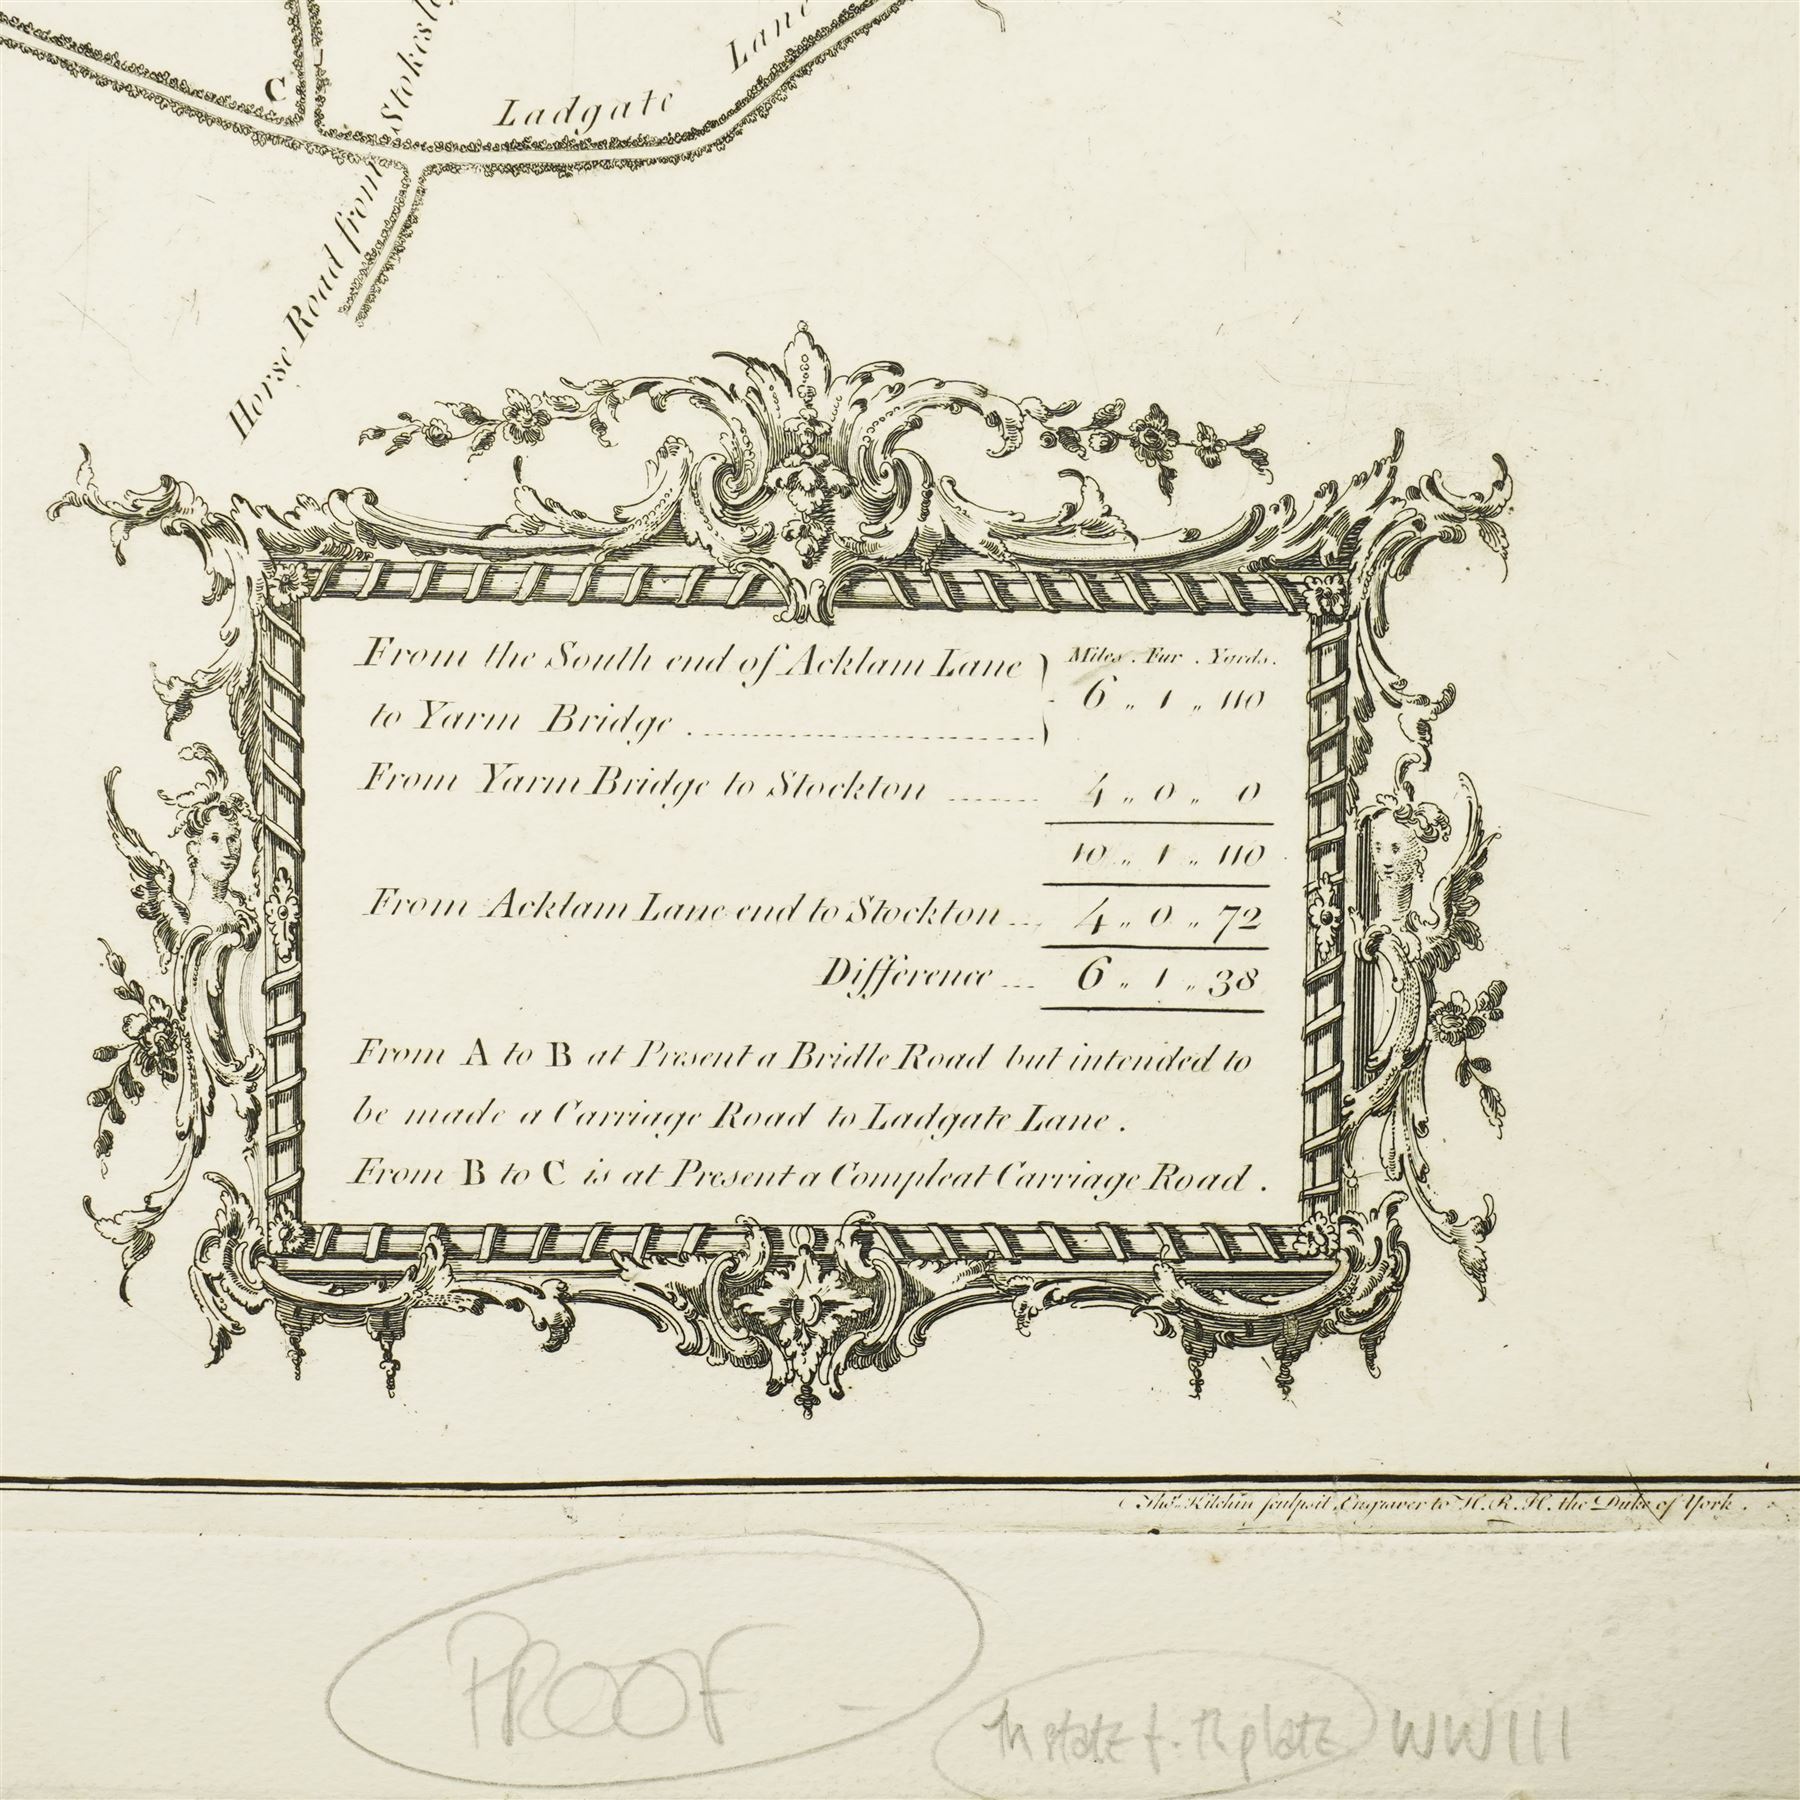 C
Stokesley
Ladgate Lane
Horse Road from
From the South end of Acklam Lane
to Yarm Bridge ........................
Miles . Fur . Yards.
6 „ 1 „ 110
From Yarm Bridge to Stockton ........ 4 „ 0 „ 0
10 „ 1 „ 110
From Acklam Lane end to Stockton ... 4 „ 0 „ 72
Difference ... 6 „ 1 „ 38
From A to B at Present a Bridle Road but intended to
be made a Carriage Road to Ladgate Lane.
From B to C is at Present a Compleat Carriage Road.
Thos. Kitchin sculpsit, Engraver to H.R.H. the Duke of York.
PROOF
state plate WWIII